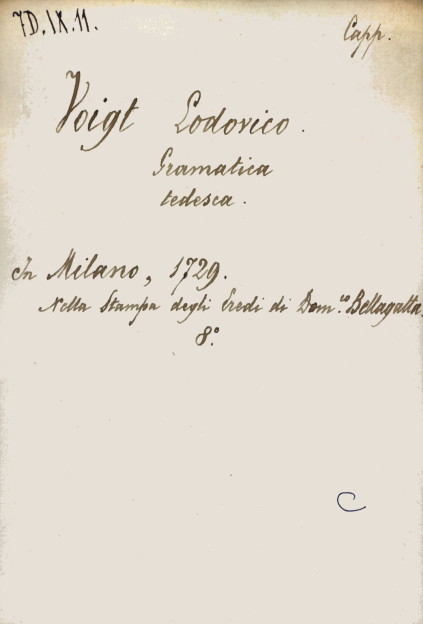 7D.IX.11.
Capp.
Voigt Lodovico.
Gramatica
tedesca.
In Milano, 1729.
Nella Stampa degli Eredi di Dom.co Bellagatta.
8.°
C